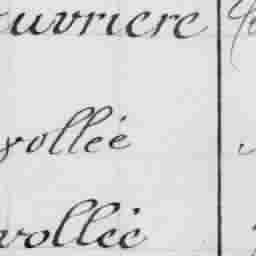 ouvriere
vollée
vollée